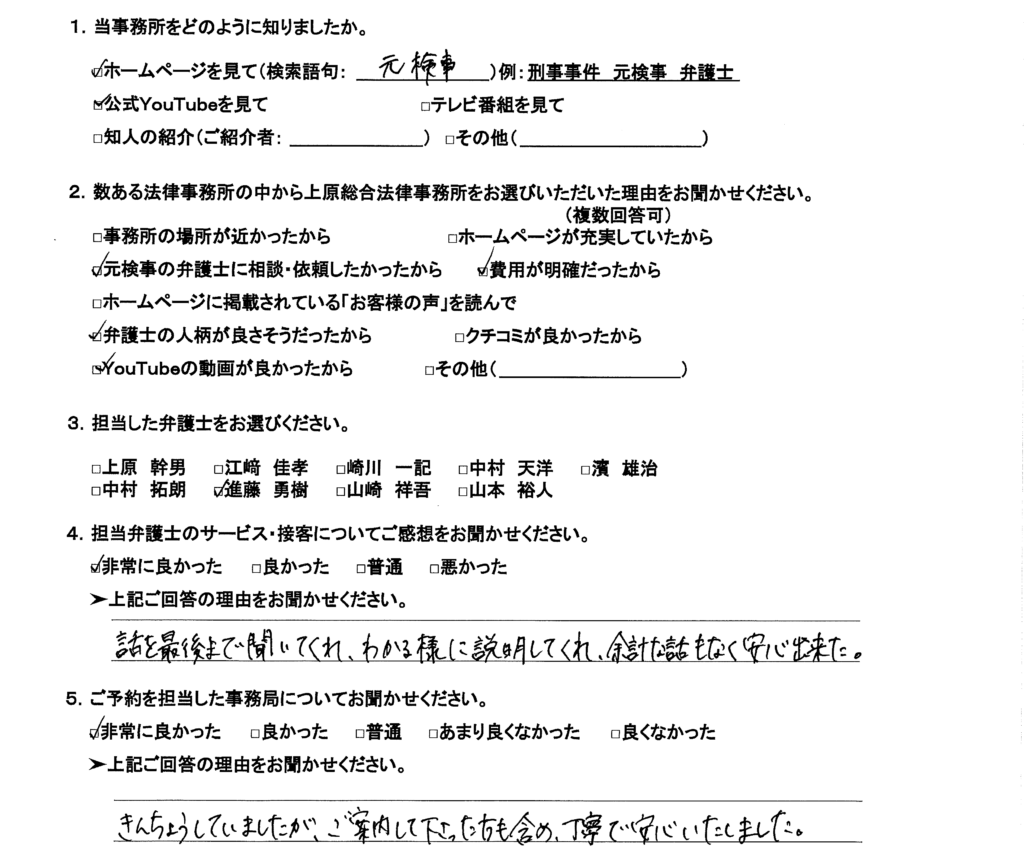 1. 当事務所をどのように知りましたか。
☑ホームページを見て(検索語句: 元検事 )例:刑事事件 元検事 弁護士
☑公式YouTubeを見て □テレビ番組を見て
□知人の紹介(ご紹介者: ) □その他( )
2. 数ある法律事務所の中から上原総合法律事務所をお選びいただいた理由をお聞かせください。
(複数回答可)
□事務所の場所が近かったから □ホームページが充実していたから
☑元検事の弁護士に相談・依頼したかったから ☑費用が明確だったから
□ホームページに掲載されている「お客様の声」を読んで
☑弁護士の人柄が良さそうだったから □クチコミが良かったから
☑YouTubeの動画が良かったから □その他( )
3. 担当した弁護士をお選びください。
□上原 幹男 □江﨑 佳孝 □崎川 一記 □中村 天洋 □濱 雄治
□中村 拓朗 ☑進藤 勇樹 □山崎 祥吾 □山本 裕人
4. 担当弁護士のサービス・接客についてご感想をお聞かせください。
☑非常に良かった □良かった □普通 □悪かった
➤上記ご回答の理由をお聞かせください。
話を最後まで聞いてくれ、わかる様に説明してくれ、余計な話もなく安心出来た。
5. ご予約を担当した事務局についてお聞かせください。
☑非常に良かった □良かった □普通 □あまり良くなかった □良くなかった
➤上記ご回答の理由をお聞かせください。
きんちょうしていましたが、ご案内して下さった方も含め、丁寧で安心いたしました。